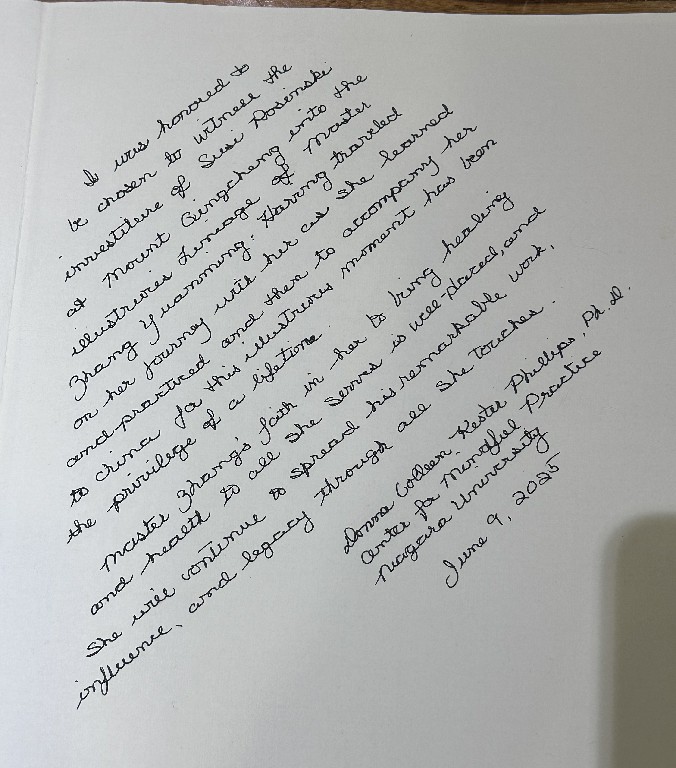 I was honored to
be chosen to witness the
investiture of Susi Rosinski
at Mount Qingcheng into the
illustrious Lineage of Master
Zhang Yuanming. Having traveled
on her journey with her as she learned
and practiced and then to accompany her
to China for this illustrious moment has been
the privilege of a lifetime.
Master Zhang's faith in her to bring healing
and health to all she serves is well-placed, and
She will continue to spread his remarkable work,
influence, and legacy through all she touches.
Donna Colleen Kester Phillips, Ph.D.
Center for Mindful Practice
Niagara University
June 9, 2025